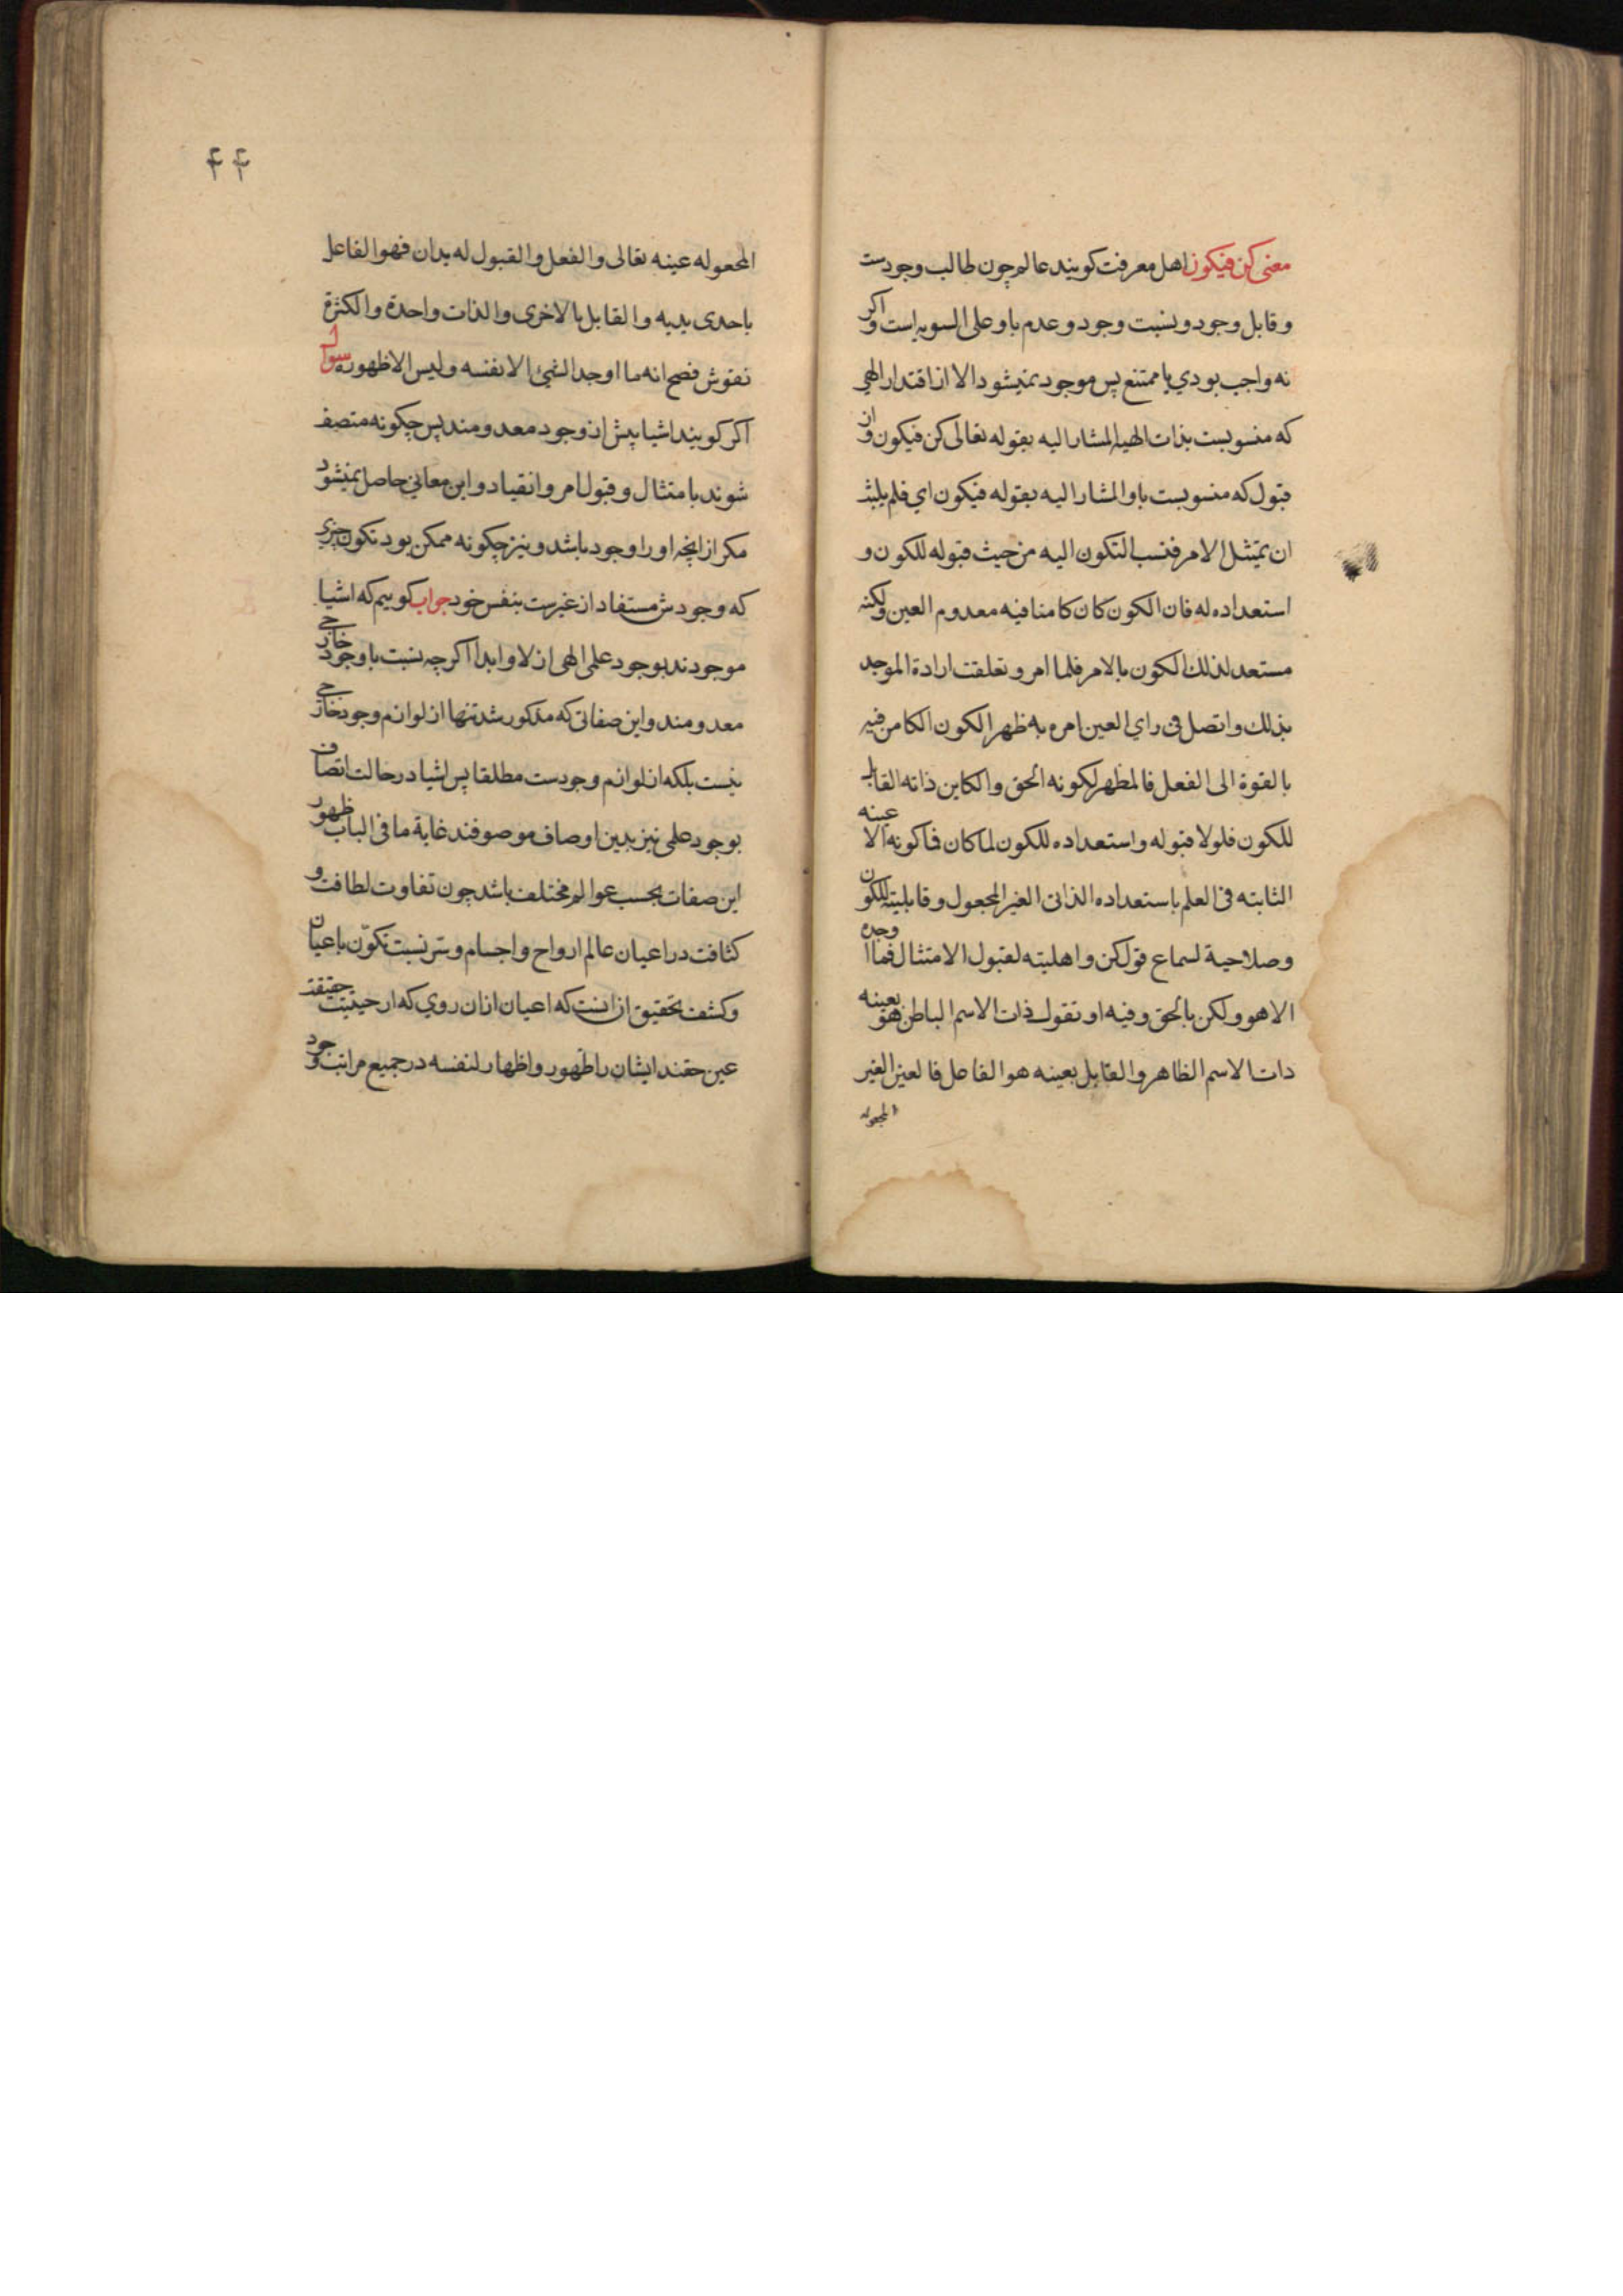 معنی کن فیکون اهل معرفت کویند عالم چون طالب وجودست
و قابل وجود و نسبت وجود و عدم با و علی السویه است و اکر
نه واجب بودي یا ممتنع پس موجود نمیشود الا از اقتدار الهی
که منسوبست بذات الهیه المشار الیه بقوله تعالی کن فیکون و از
قبول که منسوبست باو المشار الیه بقوله فیکون اي فلم یلبث
ان یمتثل الامر فنسب التکون الیه من حیث قبوله للکون و
استعداده له فان الکون کان کامنا فیه معدوم العین ولکنه
مستعد لذلك الکون بالامر فلما امر و تعلقت ارادة الموجد
بذلك واتصل فی راي العین امره به ظهر الکون الکامن فیه
بالقوة الی الفعل فالمظهر لکونه الحق والکاین ذاته القابل
للکون فلولا قبوله واستعداده للکون لما کان فما کونه الا عینه
الثابته فی العلم باستعداده الذاتی الغیر المجعول و قابلیته للکون
وصلاحیة لسماع قول کن و اهلیته لقبول الامتثال فما اوجده
الا هو ولکن بالحق و فیه او تقول ذات الاسم الباطن هو بعینه
ذات الاسم الظاهر والقابل بعینه هو الفاعل فالعین الغیر
المجعوله
۴۴
المجعوله عینه تعالی والفعل والقبول له یدان فهو الفاعل
باحدی یدیه والقابل بالاخری والذات واحدة والکثرة
نقوش فصح انه ما اوجد الشئ الا نفسه ولیس الا ظهوره سوال
اکر کویند اشیا پیش از وجود معدومند پس چکونه متصف
شوند بامتثال و قبول امر و انقیاد و این معانی حاصل نمیشود
مکر از انچه او را وجود باشد و نیز چکونه ممکن بود تکون چیزي
که وجودش مستفاد از غیرست بنفس خود جواب کوییم که اشیا
موجودند بوجود علمی الهی ازلا و ابدا اکرچه نسبت با وجود خارجی
معدومند و این صفاتی که مذکور شد تنها از لوازم وجود خارجی
نیست بلکه از لوازم وجودست مطلقا پس اشیا در حالت اتصاف
بوجود علمی نیز بدین اوصاف موصوفند غایة ما فی الباب ظهور
این صفات بحسب عوالم مختلف باشد چون تفاوت لطافت و
کثافت در اعیان عالم ارواح و اجسام و سّر نسبت تکوّن باعیان
و کشف تحقیق از انست که اعیان ازان روي که از حیثیت حقیقت
عین حقند ایشان را ظهور و اظهار لنفسه در جمیع مراتب وجود